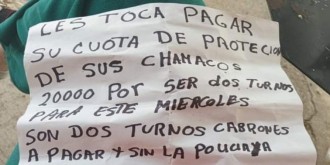 LES TOCA PAGAR
SU CUOTA DE PROTECION
DE SUS CHAMACOS
20000 POR SER DOS TURNOS
PARA ESTE MIERCOLES
SON DOS TURNOS CABRONES
A PAGAR Y SIN LA POLICIAYA